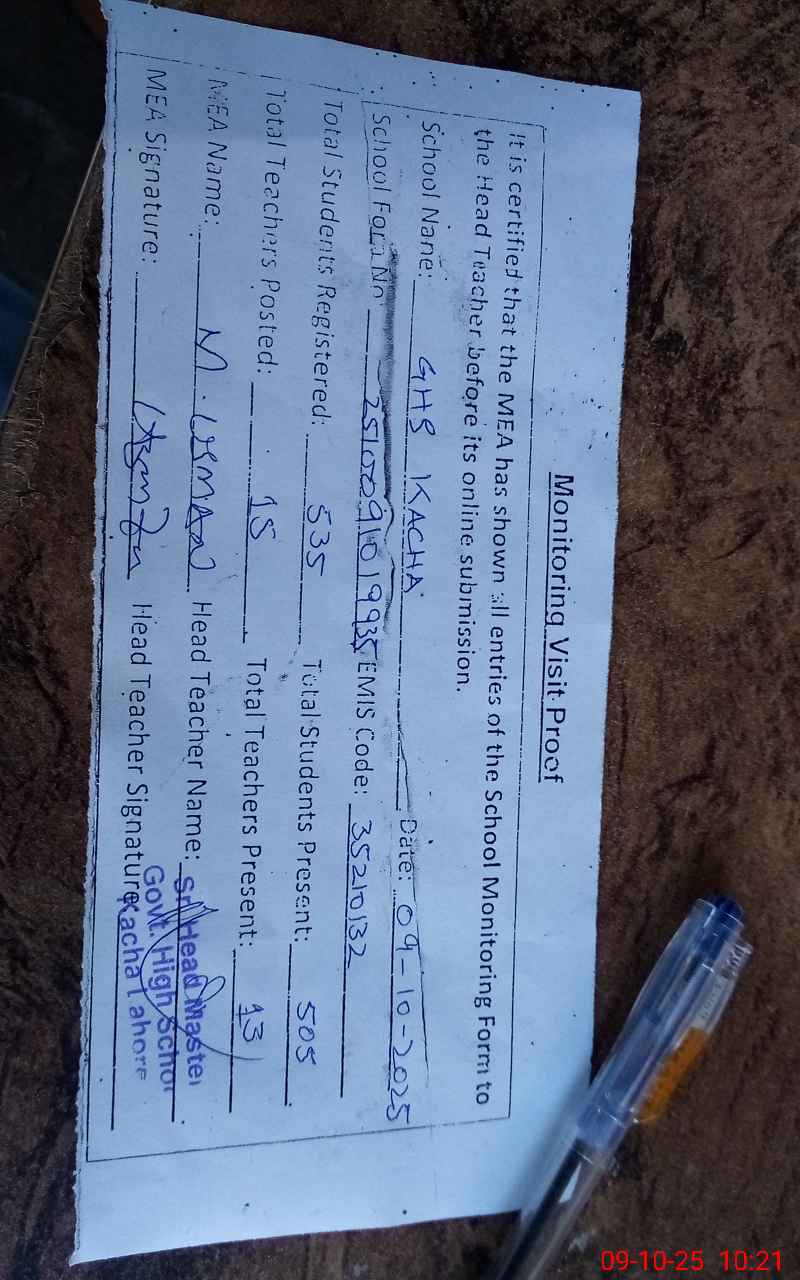 Monitoring Visit Proof
It is certified that the MEA has shown all entries of the School Monitoring Form to
the Head Teacher before its online submission.
School Name: GHS KACHA Date: 09-10-2025
School Form No: 2510091019935 EMIS Code: 35210132
Total Students Registered: 535 Total Students Present: 505
Total Teachers Posted: 15 Total Teachers Present: 13
MEA Name: M. USMAN Head Teacher Name:
MEA Signature: Head Teacher Signature:
Sr. Head Master
Govt. High School
Kacha Lahore
09-10-25 10:21